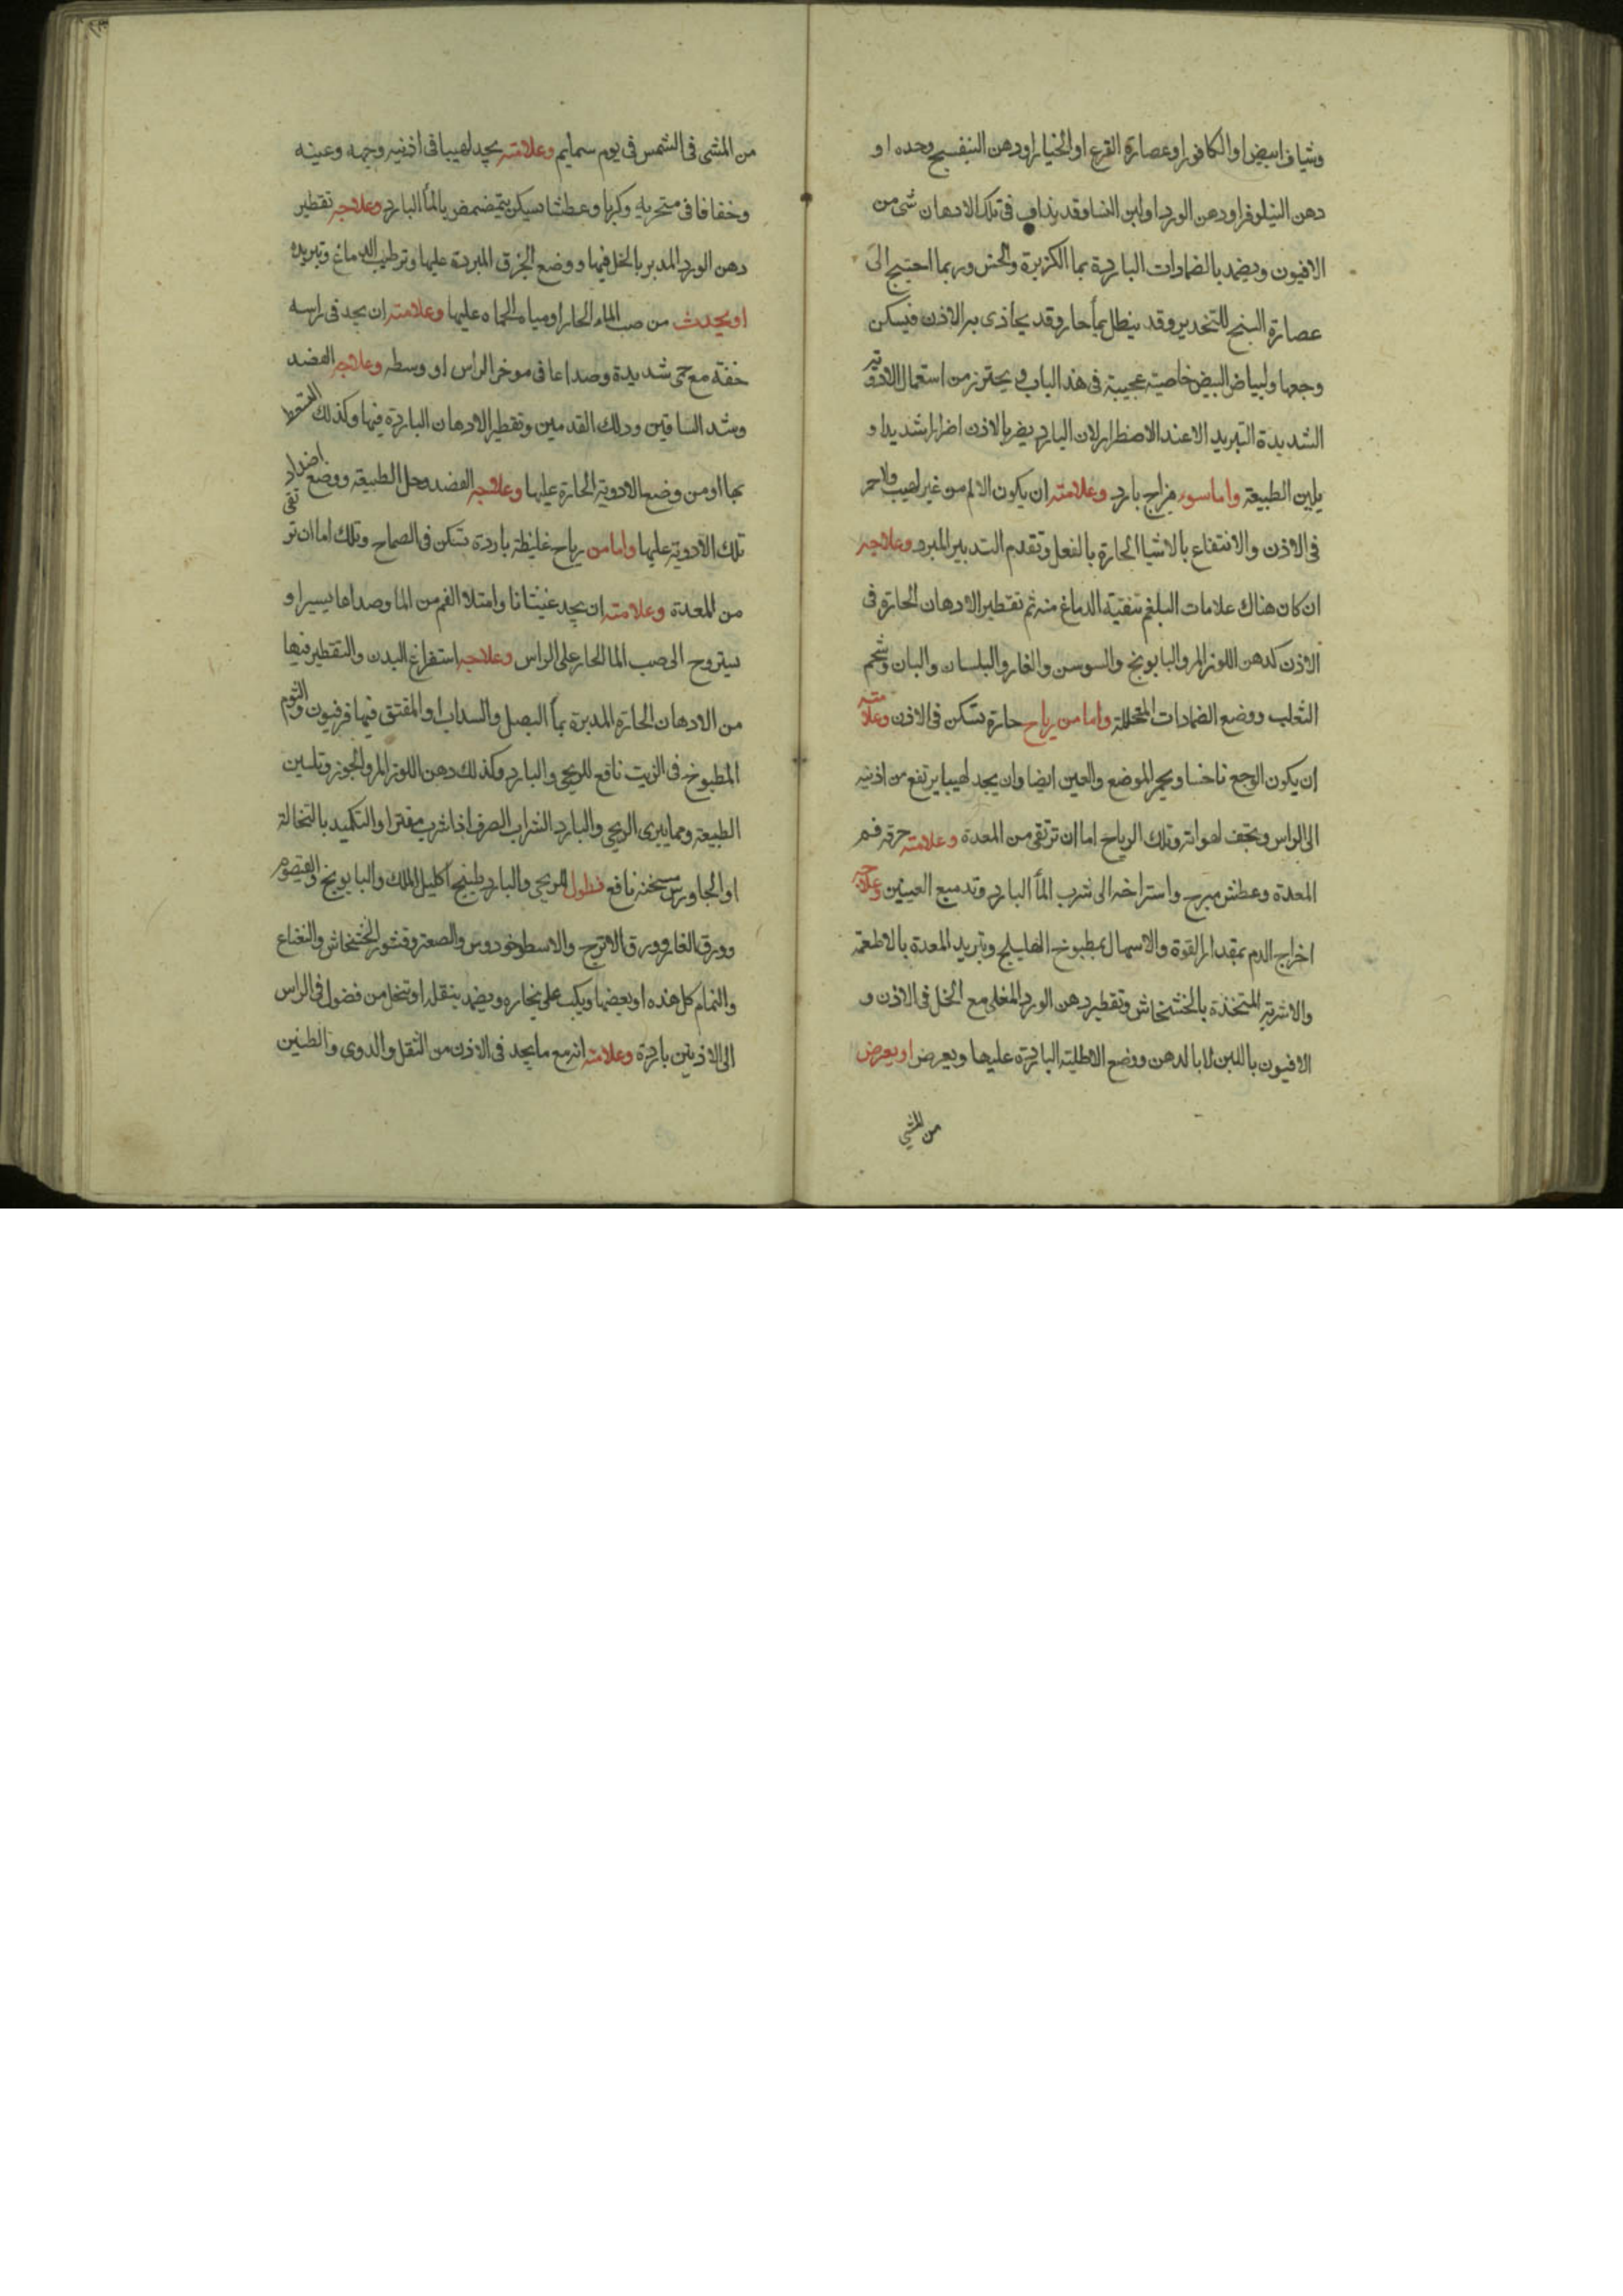 وشياف ابيض او الكافور او عصارة القرع او الخيار او دهن البنفسج وحده او
دهن النيلوفر او دهن الورد او لبن النسا وقد يذاف فى تلك الادهان شى من
الافيون ويضمد بالضمادات الباردة بما الكزبرة والخس وربما احتيج الى
عصارة البنج للتخدير وقد ينطل بمأ حار وقد يحاذى به الاذن فيسكن
وجعها ولبياض البيض خاصية عجيبة فى هذا الباب ويحترز من استعمال الادوية
الشديدة التبريد الا عند الاضطرار لان البارد يضر بالاذن اضرارا شديدا و
يلين الطبيعة واما سوء مزاج بارد وعلامته ان يكون الالم من غير لهيب ولا حمر
فى الاذن والانتفاع بالاشيا الحارة بالفعل وتقدم التدبير المبرد وعلاجه
ان كان هناك علامات البلغم تنقية الدماغ منه ثم تقطير الادهان الحارة فى
الاذن كدهن اللوز المر والبابونج والسوسن والغار والبلسان والبان وشحم
الثعلب ووضع الضمادات المحللة واما من رياح حارة تسكن فى الاذن وعلامته
ان يكون الوجع ناخسا ويحمر الموضع والعين ايضا وان يجد لهيبا يرتفع من اذنيه
الى الراس ويجف لهواته وتلك الرياح اما ان ترتقى من المعدة وعلامته حرقة فم
المعدة وعطش مبرح واستراحة الى شرب المأ البارد وتدميع العينين وعلاجه
اخراج الدم بمقدار القوة والاسهال بمطبوخ الهليلج وتبريد المعدة بالاطعمة
والاشربة المتخذة بالخشخاش وتقطير دهن الورد المغلى مع الخل فى الاذن و
الافيون باللبن لا بالدهن ووضع الاطلية الباردة عليها ويعرض او يعرض
من المشى
من المشى فى الشمس فى يوم سمايم وعلامته يجد لهيبا فى اذنيه وجهه وعينه
وخفافا فى منخريه وكربا وعطشا يسكن بتمضمض بالمأ البارد وعلاجه تقطير
دهن الورد المدبر بالخل فيها ووضع الخرق المبردة عليها وترطيب الدماغ وتبريده
او يحدث من صب الماء الحار او مياه الحماه عليها وعلامته ان يجد فى راسه
خفة مع حمى شديدة وصداعا فى موخر الراس او وسطه وعلاجه الفصد
وشد الساقين ودلك القدمين وتقطير الادهان الباردة فيها وكذلك السعوط
بها او من وضع الادوية الحارة عليها وعلاجه الفصد وحل الطبيعة ووضع اضداد
تلك الادوية عليها واما من رياح غليظة باردة تسكن فى الصماخ وتلك اما ان ترتقى
من المعدة وعلامته ان يجد غثيانا وامتلا الفم من الما وصداعا يسيرا و
يستروح الى صب الما الحار على الراس وعلاجه استفراغ البدن والتقطير فيها
من الادهان الحارة المدبرة بمأ البصل والسداب او المفتق فيها فرفيون والثوم
المطبوخ فى الزيت نافع للريحى والبارد وكذلك دهن اللوز المر والجوز وتليين
الطبيعة ومما يبرى الريحى والبارد الشراب الصرف اذا شرب مفترا والتكميد بالنخالة
او الجاورس مسخنة نافع نطول للريحى والبارد طبيخ اكليل الملك والبابونج والقيصوم
وورق الغار وورق الاترج والاسطوخودوس والصعتر وقشور الخشخاش والنعناع
والنمام كل هذه او بعضها ويكب على بخاره ويضمد بثقله او تنحل من فضول فى الراس
الى الاذنين باردة وعلامته انه مع ما يجد فى الاذن من الثقل والدوى والطنين